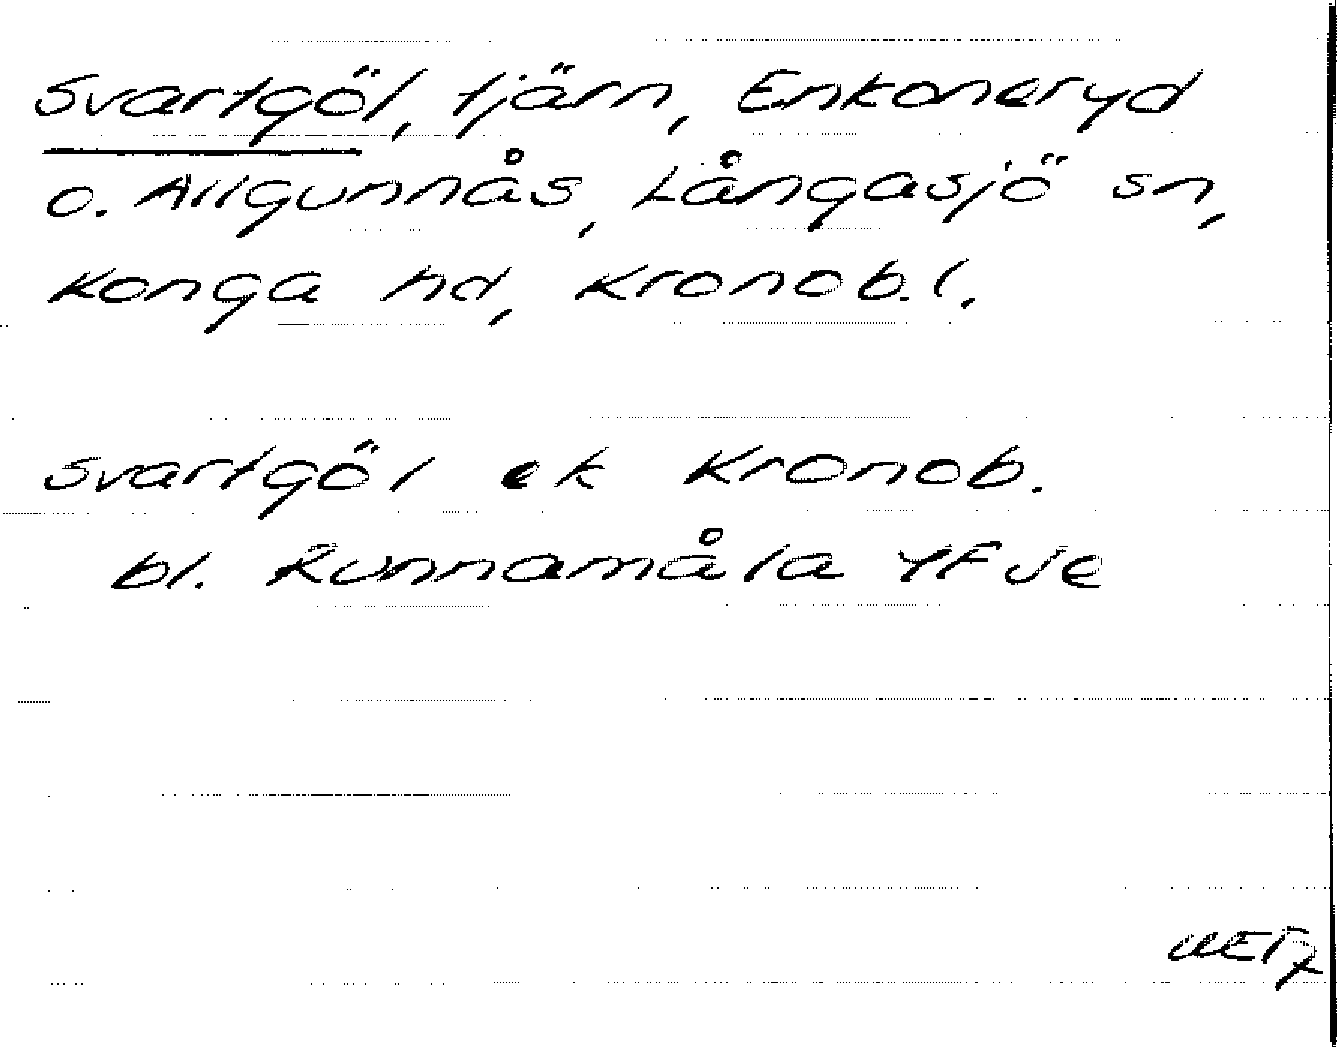 Svartgöl, tjärn, Enkoneryd
o. Allgunnås, Långasjö sn,
Konga hd, Kronob.l.
Svartgöl ek Kronob.
bl. Runnamåla 4F Je